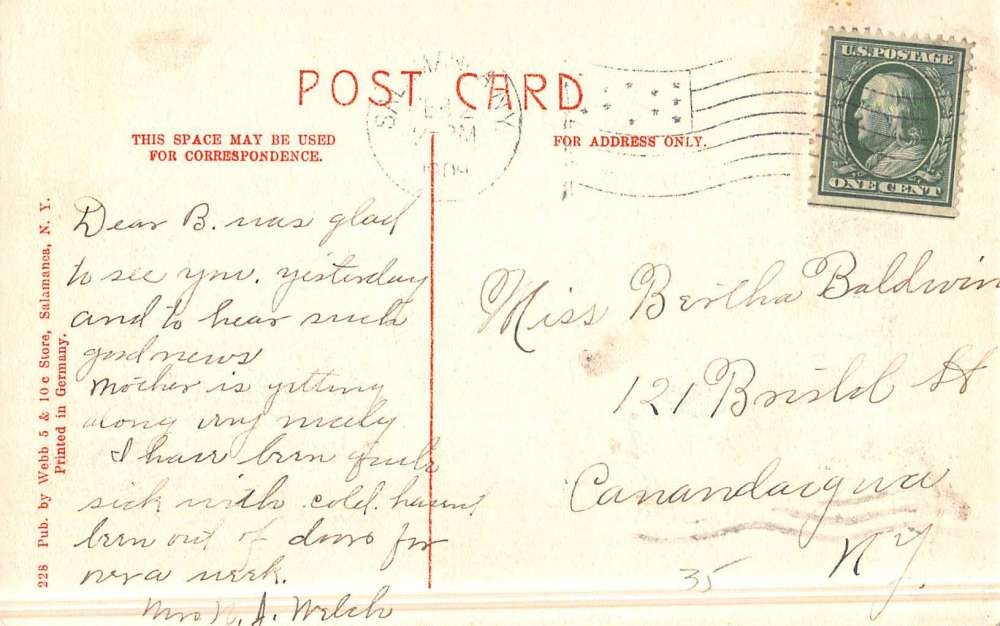 POST CARD
THIS SPACE MAY BE USED
FOR CORRESPONDENCE.
FOR ADDRESS ONLY.
U.S. POSTAGE
ONE CENT
PM
1909
228 Pub. by Webb 5 & 10 c Store, Salamanca, N. Y.
Printed in Germany.
Dear B. was glad
to see you. yesterday
and to hear such
good news
Mother is getting
along very nicely
I have been quite
sick with cold. havent
been out of doors for
over a week.
Mrs N. J. Welch
Miss Bertha Baldwin
121 Bristol St
Canandaigua
NY.
35